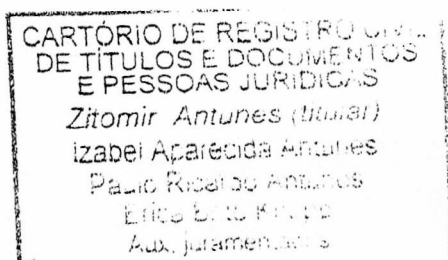 CARTÓRIO DE REGISTRO CIVIL
DE TÍTULOS E DOCUMENTOS
E PESSOAS JURIDICAS
Zitomir Antunes (titular)
Izabel Aparecida Antunes
Paulo Ricardo Antunes
Erica
Aux. juramentados